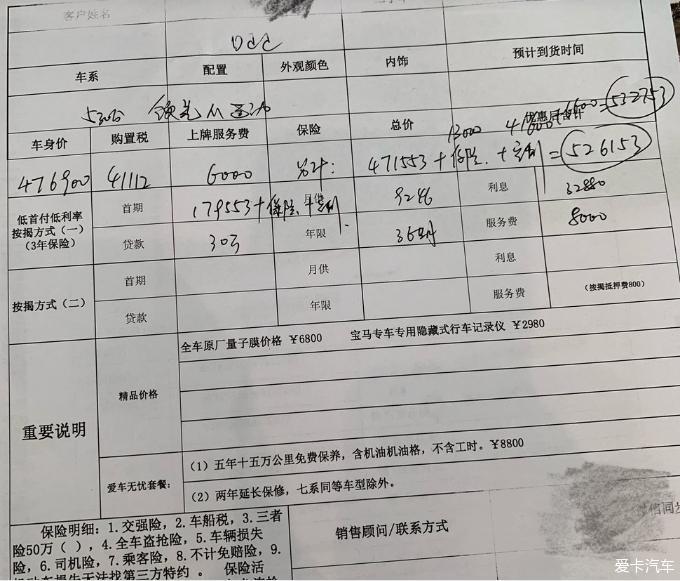 客户姓名
车系 配置 外观颜色 内饰 预计到货时间
530Li
13000 41600 6600 = 532753
车身价 购置税 上牌服务费 保险 总价 优惠后合计
476900 41112 6000 另计: 471553 + 保险 + = 526153
低首付低利率
按揭方式（一）
（3年保险）
首期 179553 + 保险 + 月供 9246 利息 32880
贷款 30万 年限 36期 服务费 8000
按揭方式（二） 首期 月供 利息
贷款 年限 服务费 （按揭抵押费800）
重要说明
精品价格
全车原厂量子膜价格 ￥6800 宝马专车专用隐藏式行车记录仪 ￥2980
爱车无忧套餐：
（1）五年十五万公里免费保养，含机油机油格，不含工时。￥8800
（2）两年延长保修，七系同等车型除外。
保险明细：1.交强险，2.车船税，3.三者
险50万（ ），4.全车盗抢险，5.车辆损失
险，6.司机险，7.乘客险，8.不计免赔险，9.
损失无法找第三方特约 。 保险活
销售顾问/联系方式
爱卡汽车